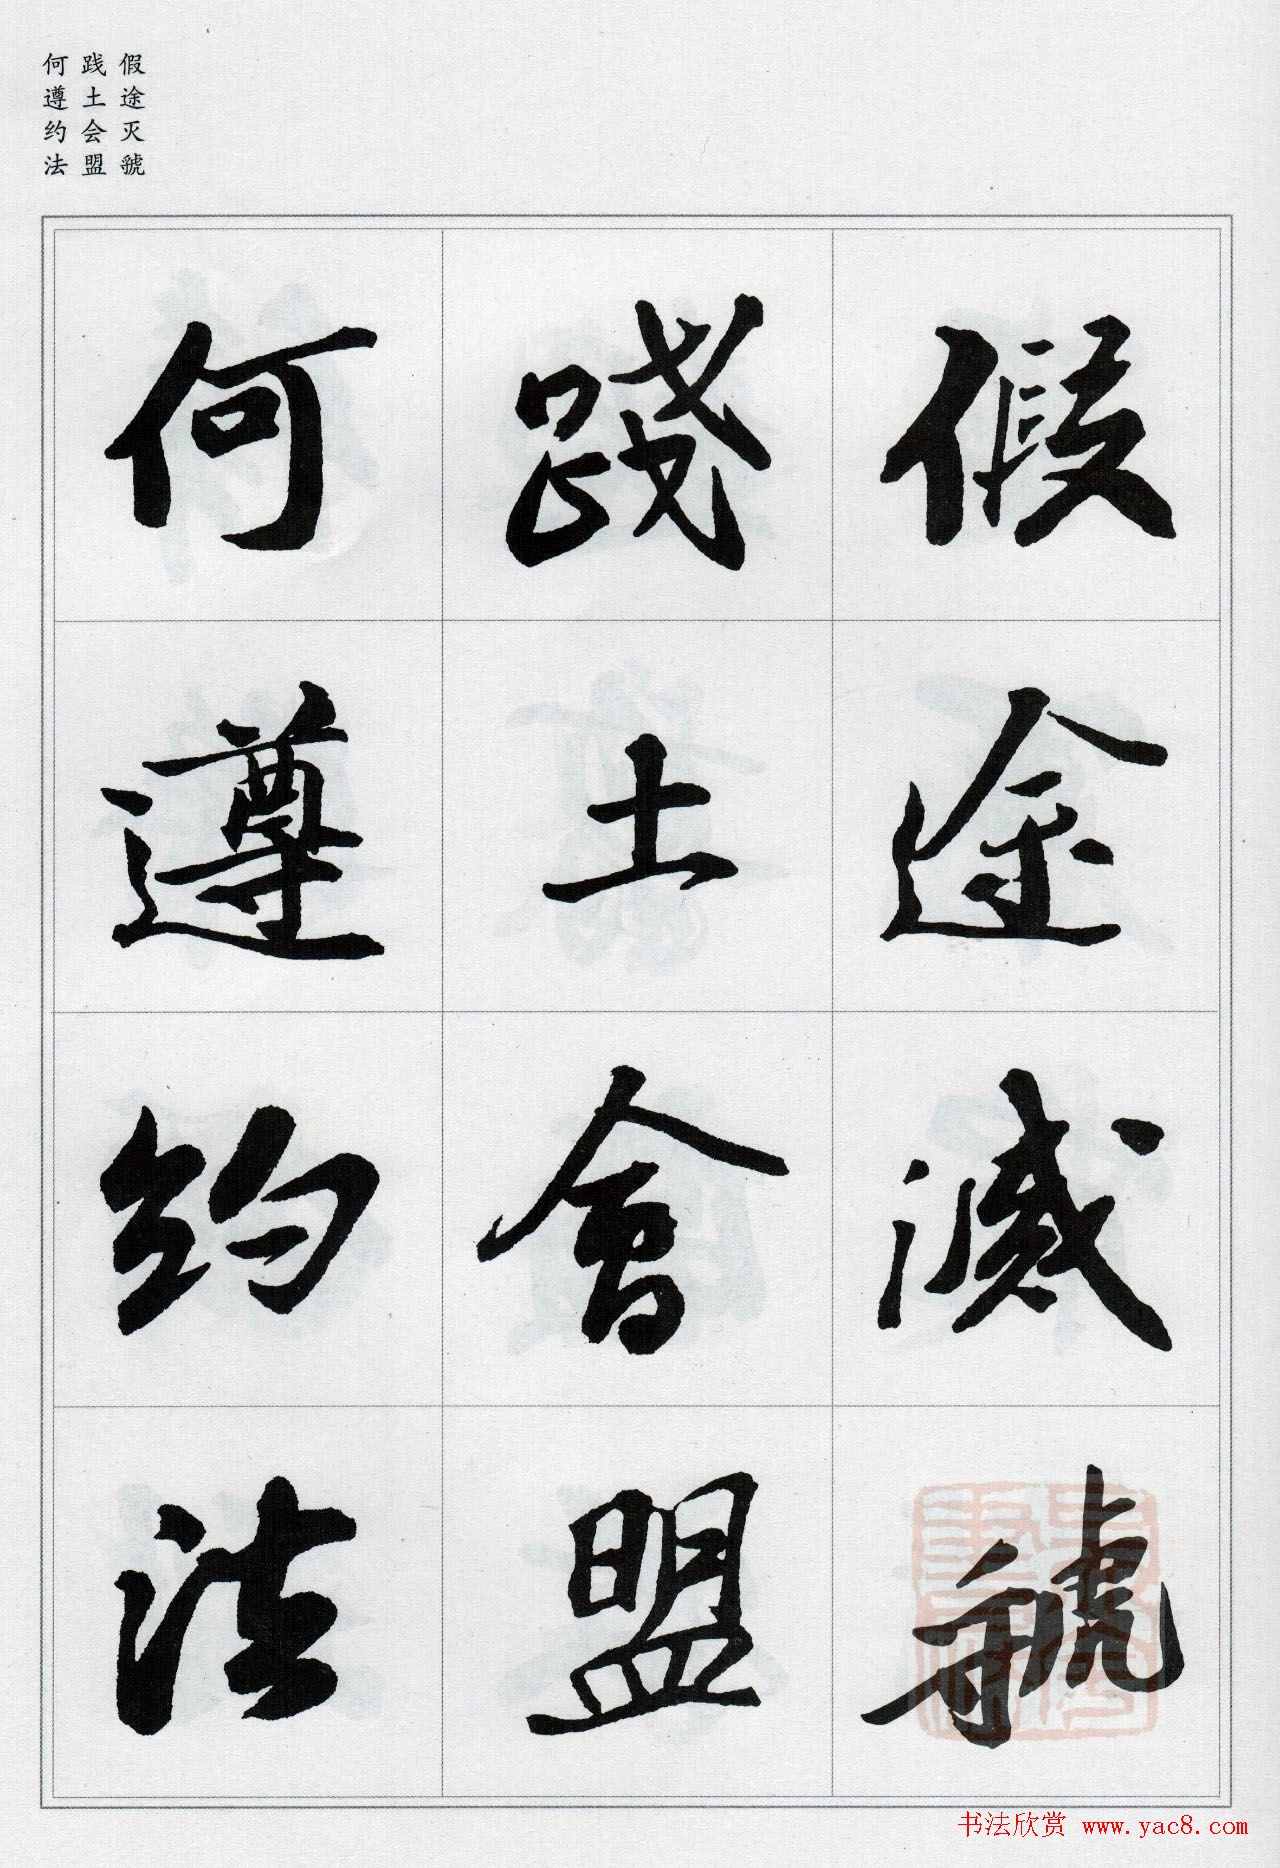 假途灭虢
践土会盟
何遵约法
假途滅虢
踐土會盟
何遵約法
书法欣赏 www.yac8.com